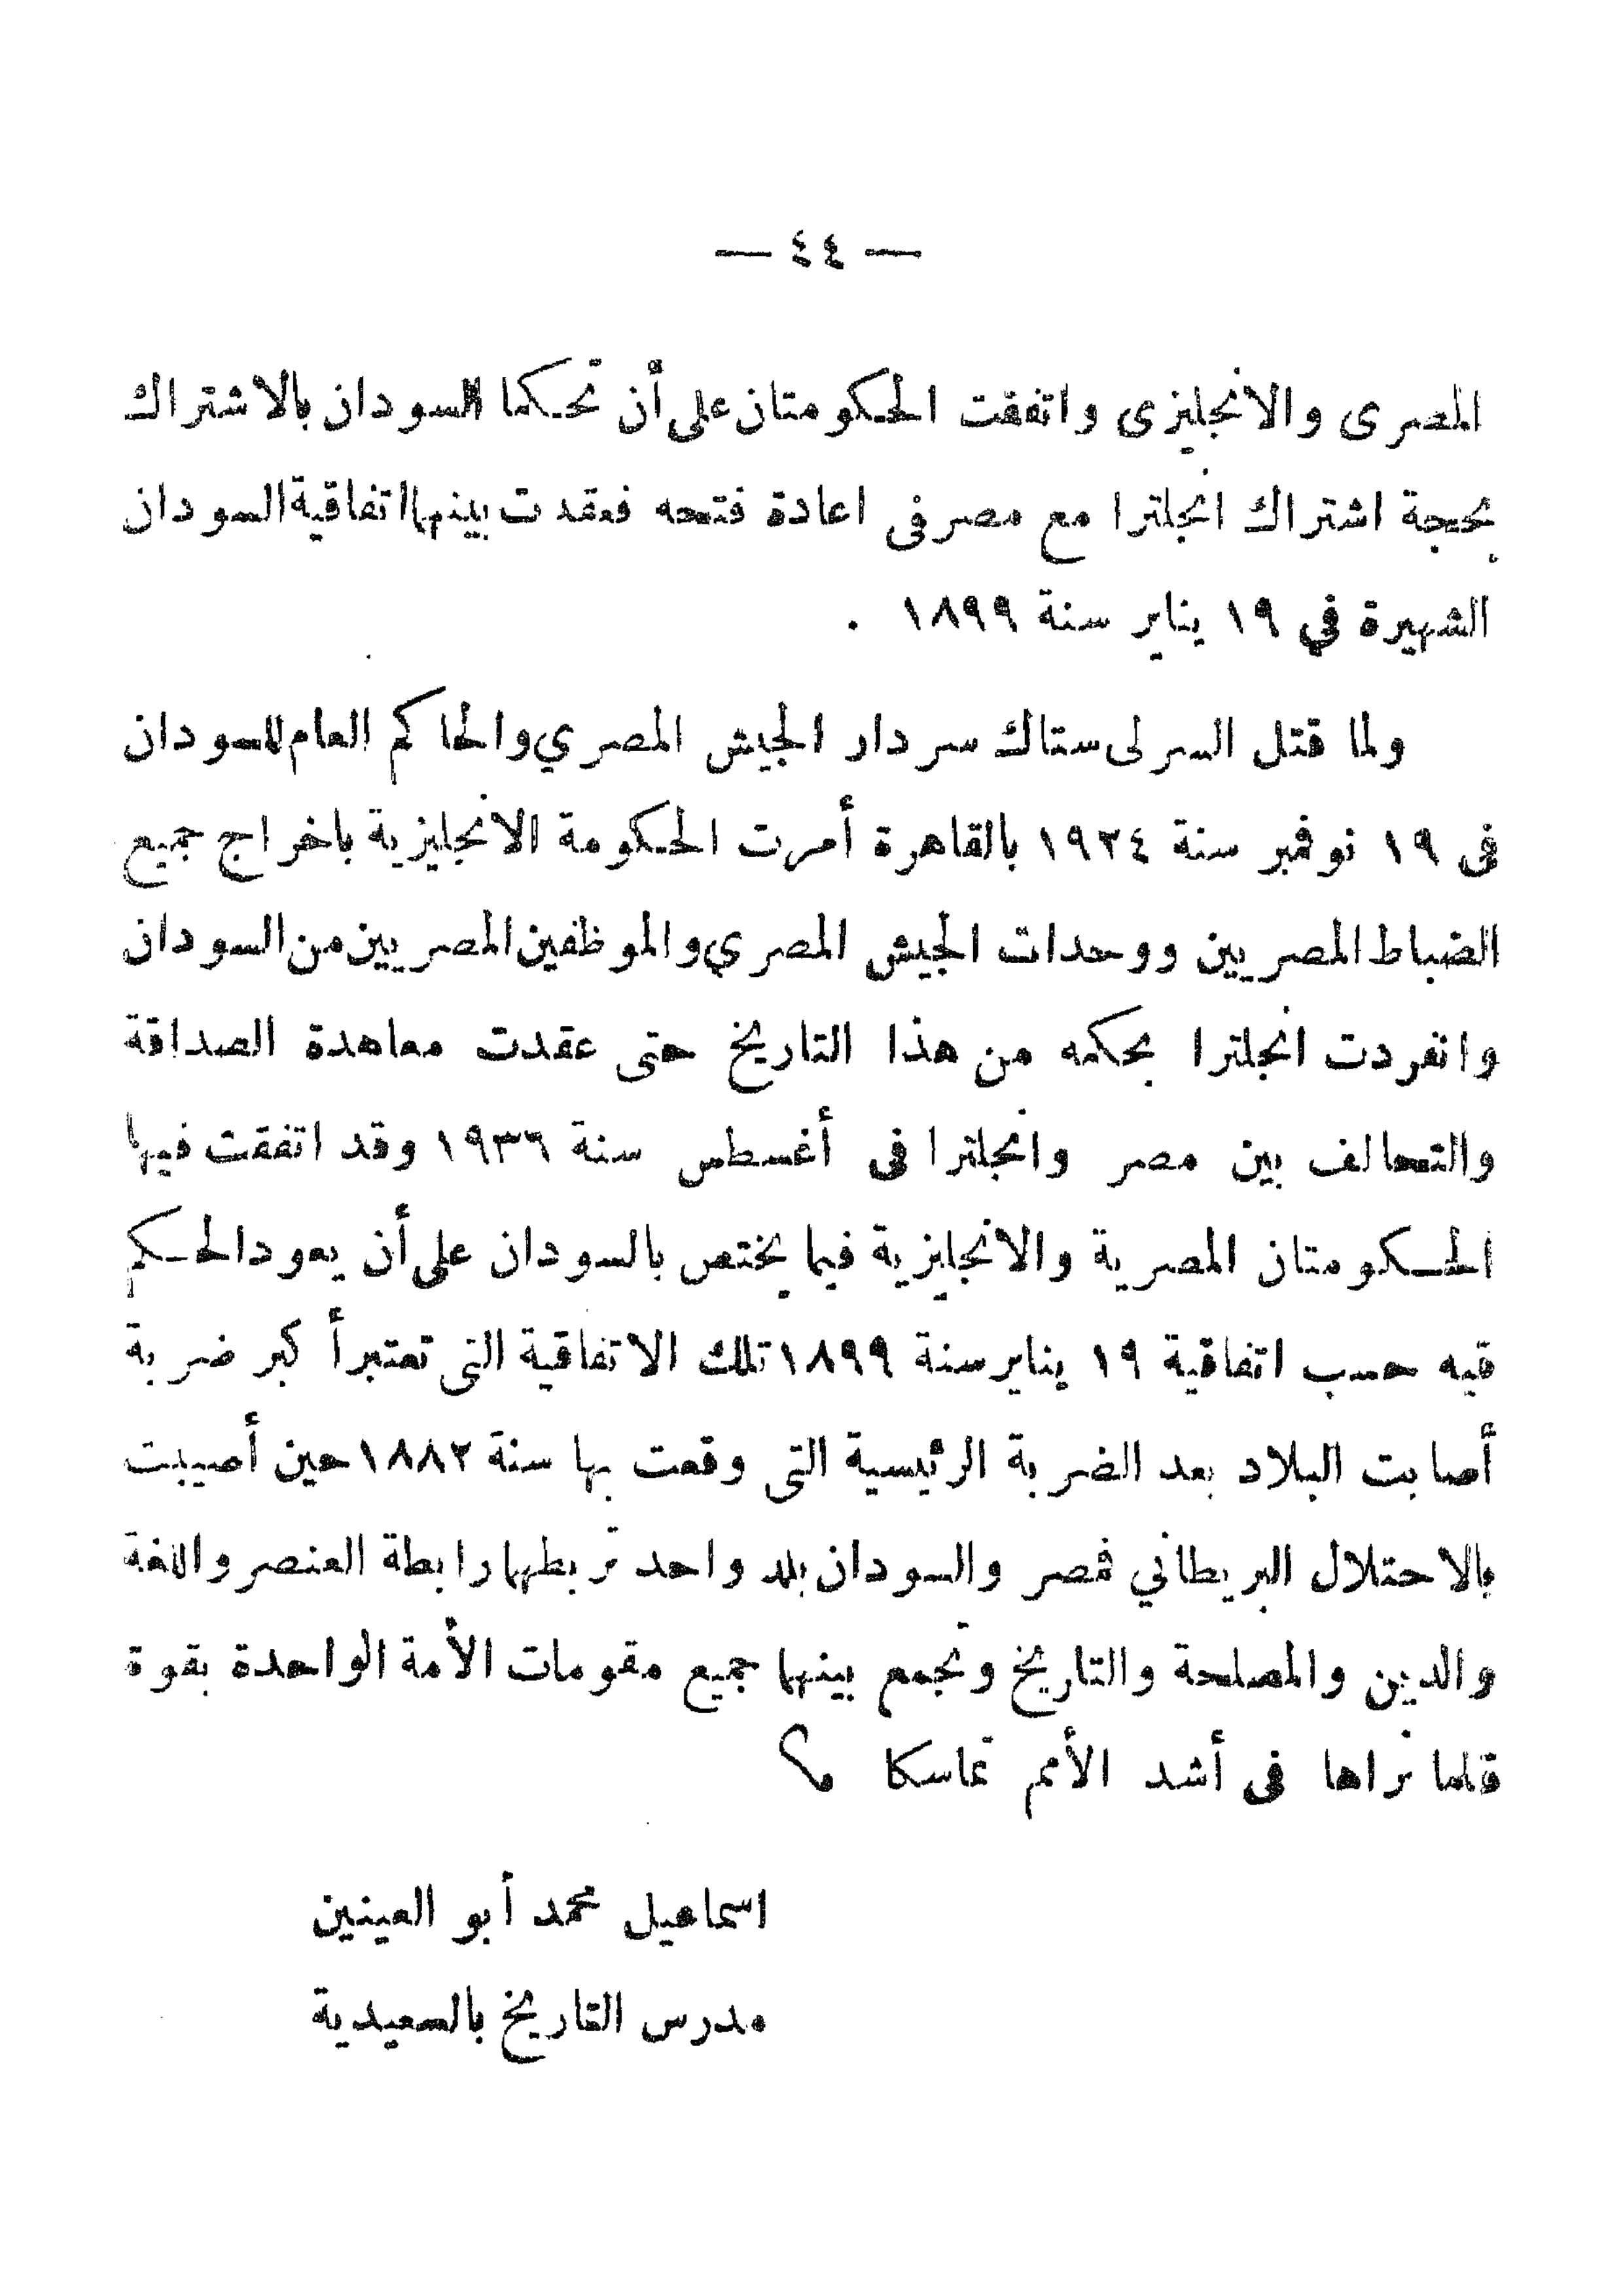 — ٤٤ —
المصرى والانجليزى واتفقت الحكومتان على أن تحكما السودان بالاشتراك
بحجة اشتراك انجلترا مع مصر فى اعادة فتحه فعقدت بينهما اتفاقية السودان
الشهيرة في ١٩ يناير سنة ١٨٩٩ .
ولما قتل السر لى ستاك سردار الجيش المصري والحاكم العام للسودان
فى ١٩ نوفمبر سنة ١٩٢٤ بالقاهرة أمرت الحكومة الانجليزية باخراج جميع
الضباط المصريين ووحدات الجيش المصري والموظفين المصريين من السودان
وانفردت انجلترا بحكمه من هذا التاريخ حتى عقدت معاهدة الصداقة
والتحالف بين مصر وانجلترا فى أغسطس سنة ١٩٣٦ وقد اتفقت فيها
الحكومتان المصرية والانجليزية فيما يختص بالسودان على أن يعود الحكم
فيه حسب اتفاقية ١٩ يناير سنة ١٨٩٩ تلك الاتفاقية التى تعتبر أكبر ضربة
أصابت البلاد بعد الضربة الرئيسية التى وقعت بها سنة ١٨٨٢ حين أصيبت
بالاحتلال البريطاني فمصر والسودان بلد واحد تربطهما رابطة العنصر واللغة
والدين والمصلحة والتاريخ وتجمع بينهما جميع مقومات الأمة الواحدة بقوة
قلما نراها فى أشد الأمم تماسكا
اسماعيل محمد أبو العينين
مدرس التاريخ بالسعيدية